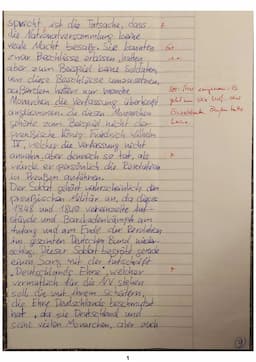 spricht, ist die Tatsache, dass
die Nationalversammlung keine
reale Macht besaß. Sie konnten
zwar Beschlüsse erlassen, hatten
aber zum Beispiel keine Soldaten,
um diese Beschlüsse umzusetzen,
außerdem hatten nur wenige
Monarchen die Verfassung überhaupt
angenommen, zu diesen Monarchen
gehörte zum Beispiel nicht der
preußische König Friedrich Wilhelm
IV, welcher die Verfassung nicht
annahm, aber dennoch so tat, als
würde er persönlich die Revolution
in Preußen anführen.
Der Soldat gehört wahrscheinlich dem
preußischen Militär an, da dieses
1848 und 1849 vermehrt Auf-
stände und Barrikadenkämpfe am
Anfang und am Ende der Revolution
im gesamten Deutschen Bund nieder-
schlug. Dieser Soldat begräbt gerade
einen Sarg mit der Aufschrift
"Deutschlands Ehre", welcher
vermutlich für die NV stehen
soll, die mit ihrem Scheitern,
die Ehre Deutschlands beschmutzt
hat, da sie Deutschland und
seine vielen Monarchen, aber auch
1